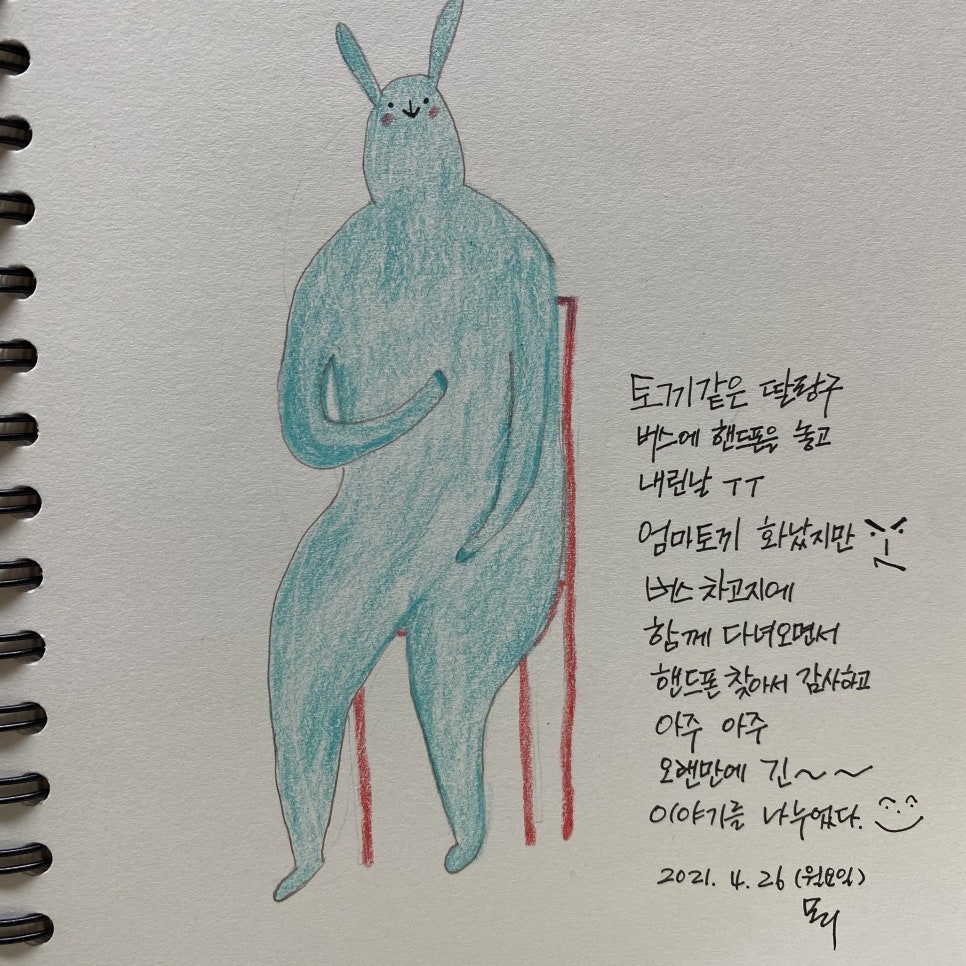 토끼같은 딸랑구
버스에 핸드폰을 놓고
내린날 ㅜㅜ
엄마토끼 화났지만
버스 차고지에
함께 다녀오면서
핸드폰 찾아서 감사하고
아주 아주
오랜만에 긴~~
이야기를 나누었다.
2021. 4. 26 (월요일)
모리